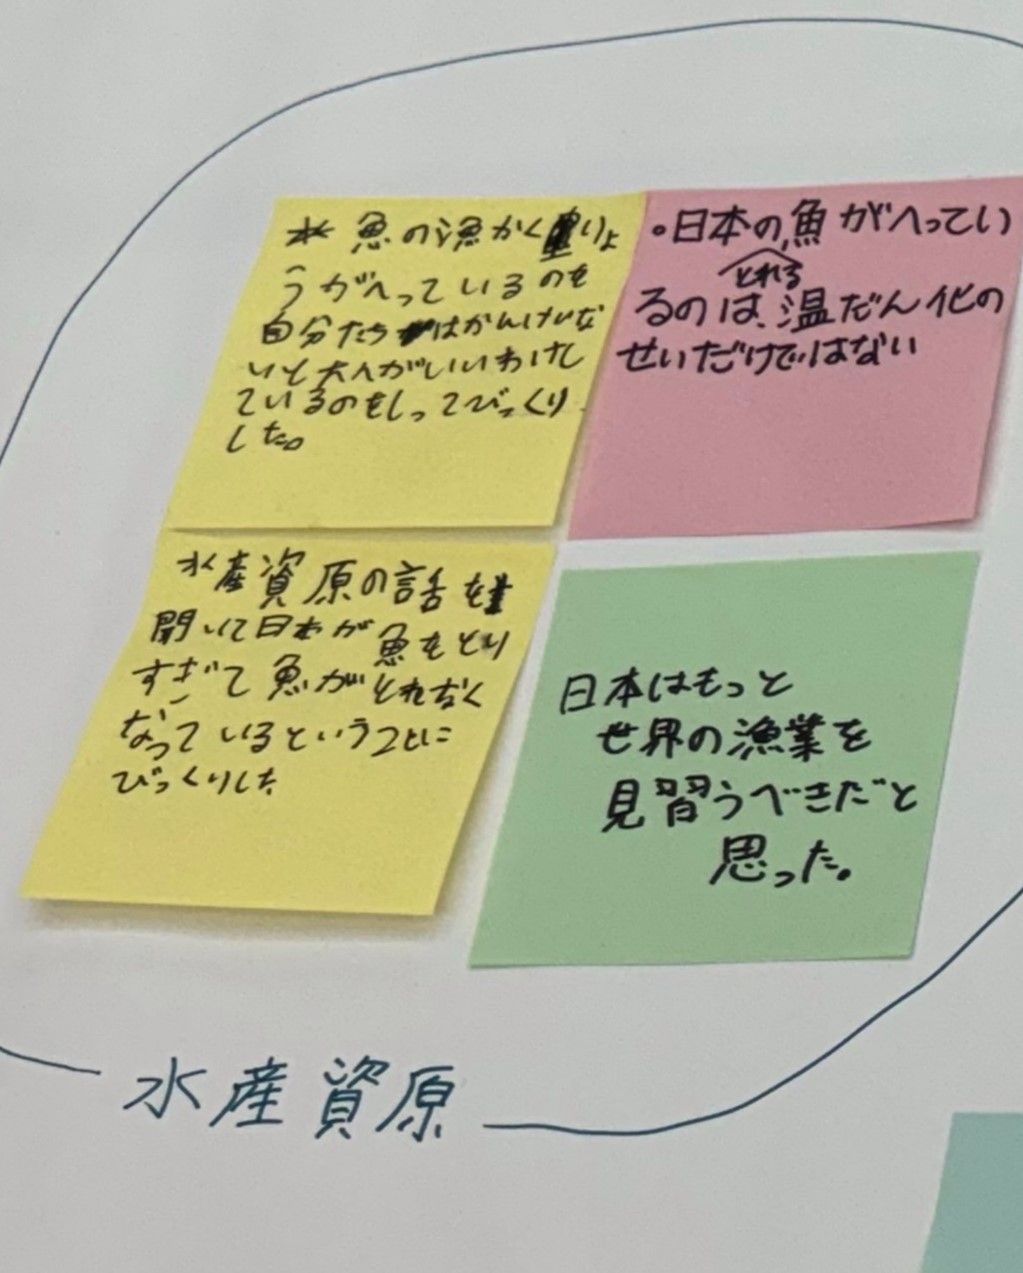 魚の漁かくりょ
うがへっているのを
自分たちはかんけいな
いと大人がいいわけし
ているのをしってびっくり
した。
・日本の、魚がへってい
とれる
るのは、温だん化の
せいだけではない
水産資原の話を
聞いて日本が魚をとり
すぎて魚がとれなく
なっているということに
びっくりした
日本はもっと
世界の漁業を
見習うべきだと
思った。
水産資原